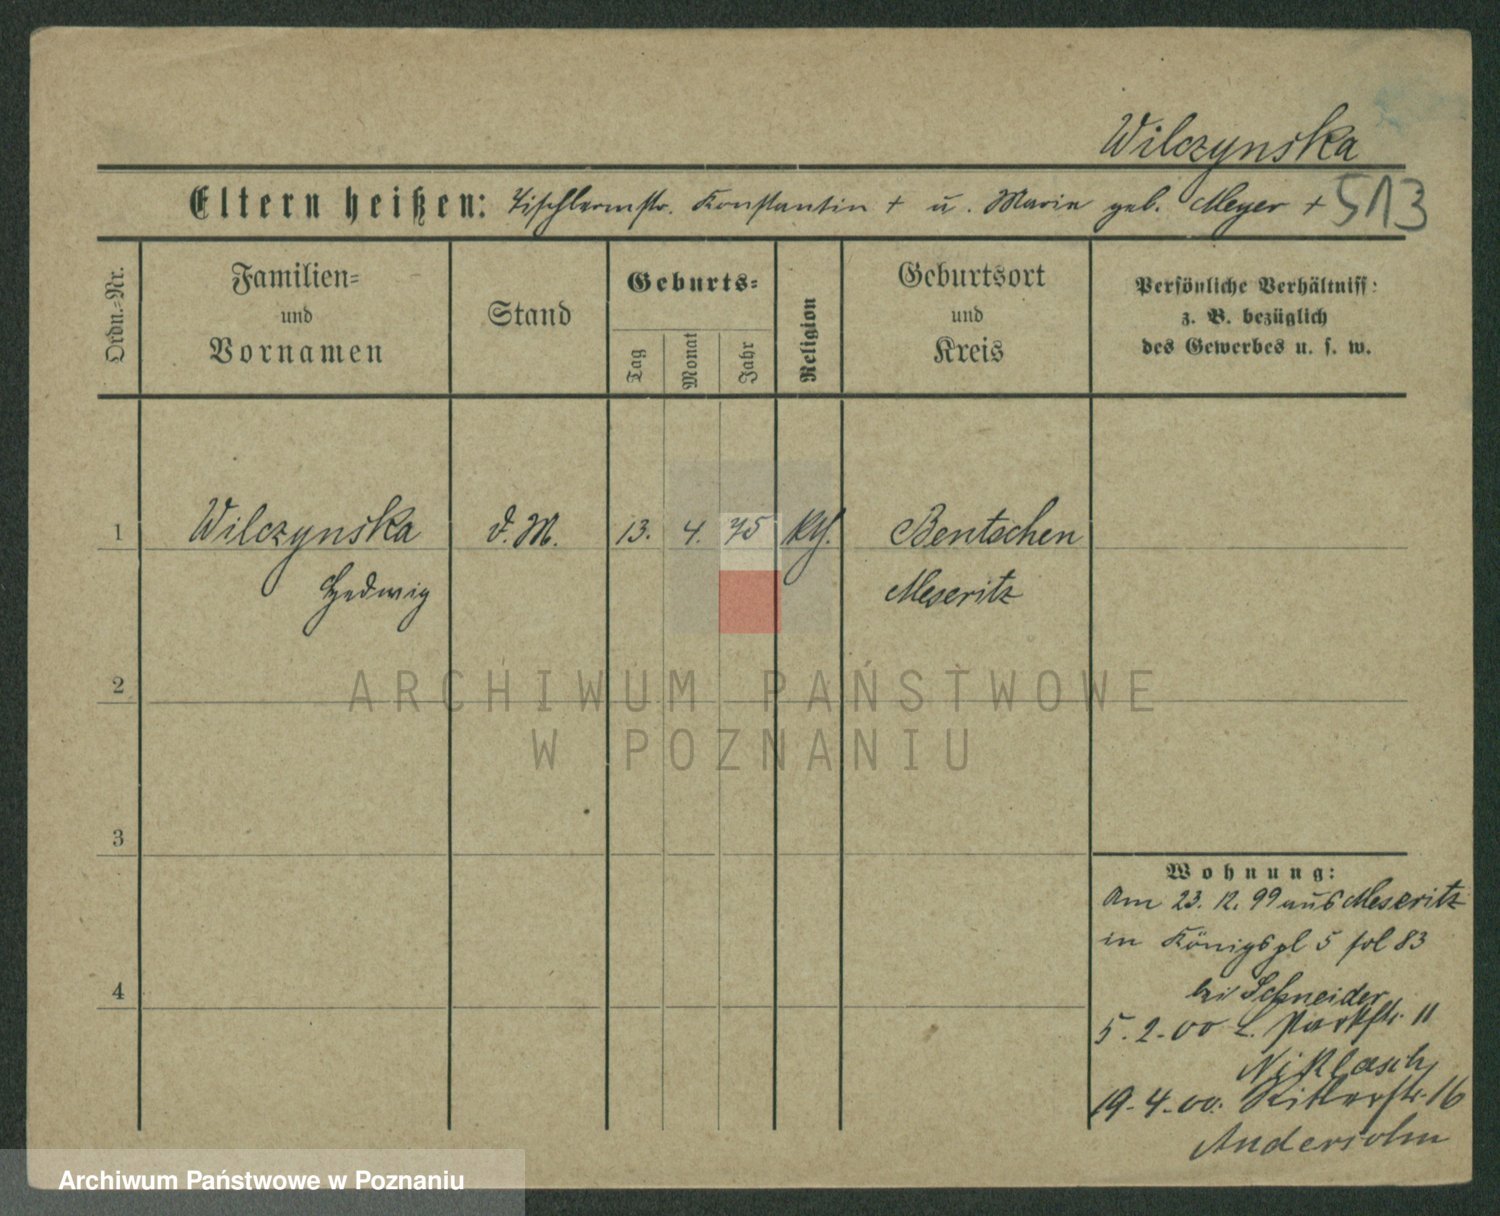 Wilczynska
Eltern heißen: Tischlermstr. Konstantin + u. Marie geb. Meyer +
513
Ordn.-Nr.
Familien-
und
Vornamen
Stand
Geburts-
Tag
Monat
Jahr
Religion
Geburtsort
und
Kreis
Persönliche Verhältniss:
z. B. bezüglich
des Gewerbes u. s. w.
1 Wilczynska d. M. 13. 4. 75 kth. Bentschen
Hedwig Meseritz
2
3
4
Wohnung:
Am 23. 12. 99 aus Meseritz
in Königspl 5 fol 83
bei Schneider
5. 2. 00 L. Parkstr. 11
Niklasch
19. 4. 00. Ritterstr. 16
Andersohn
ARCHIWUM PAŃSTWOWE
W POZNANIU
Archiwum Państwowe w Poznaniu